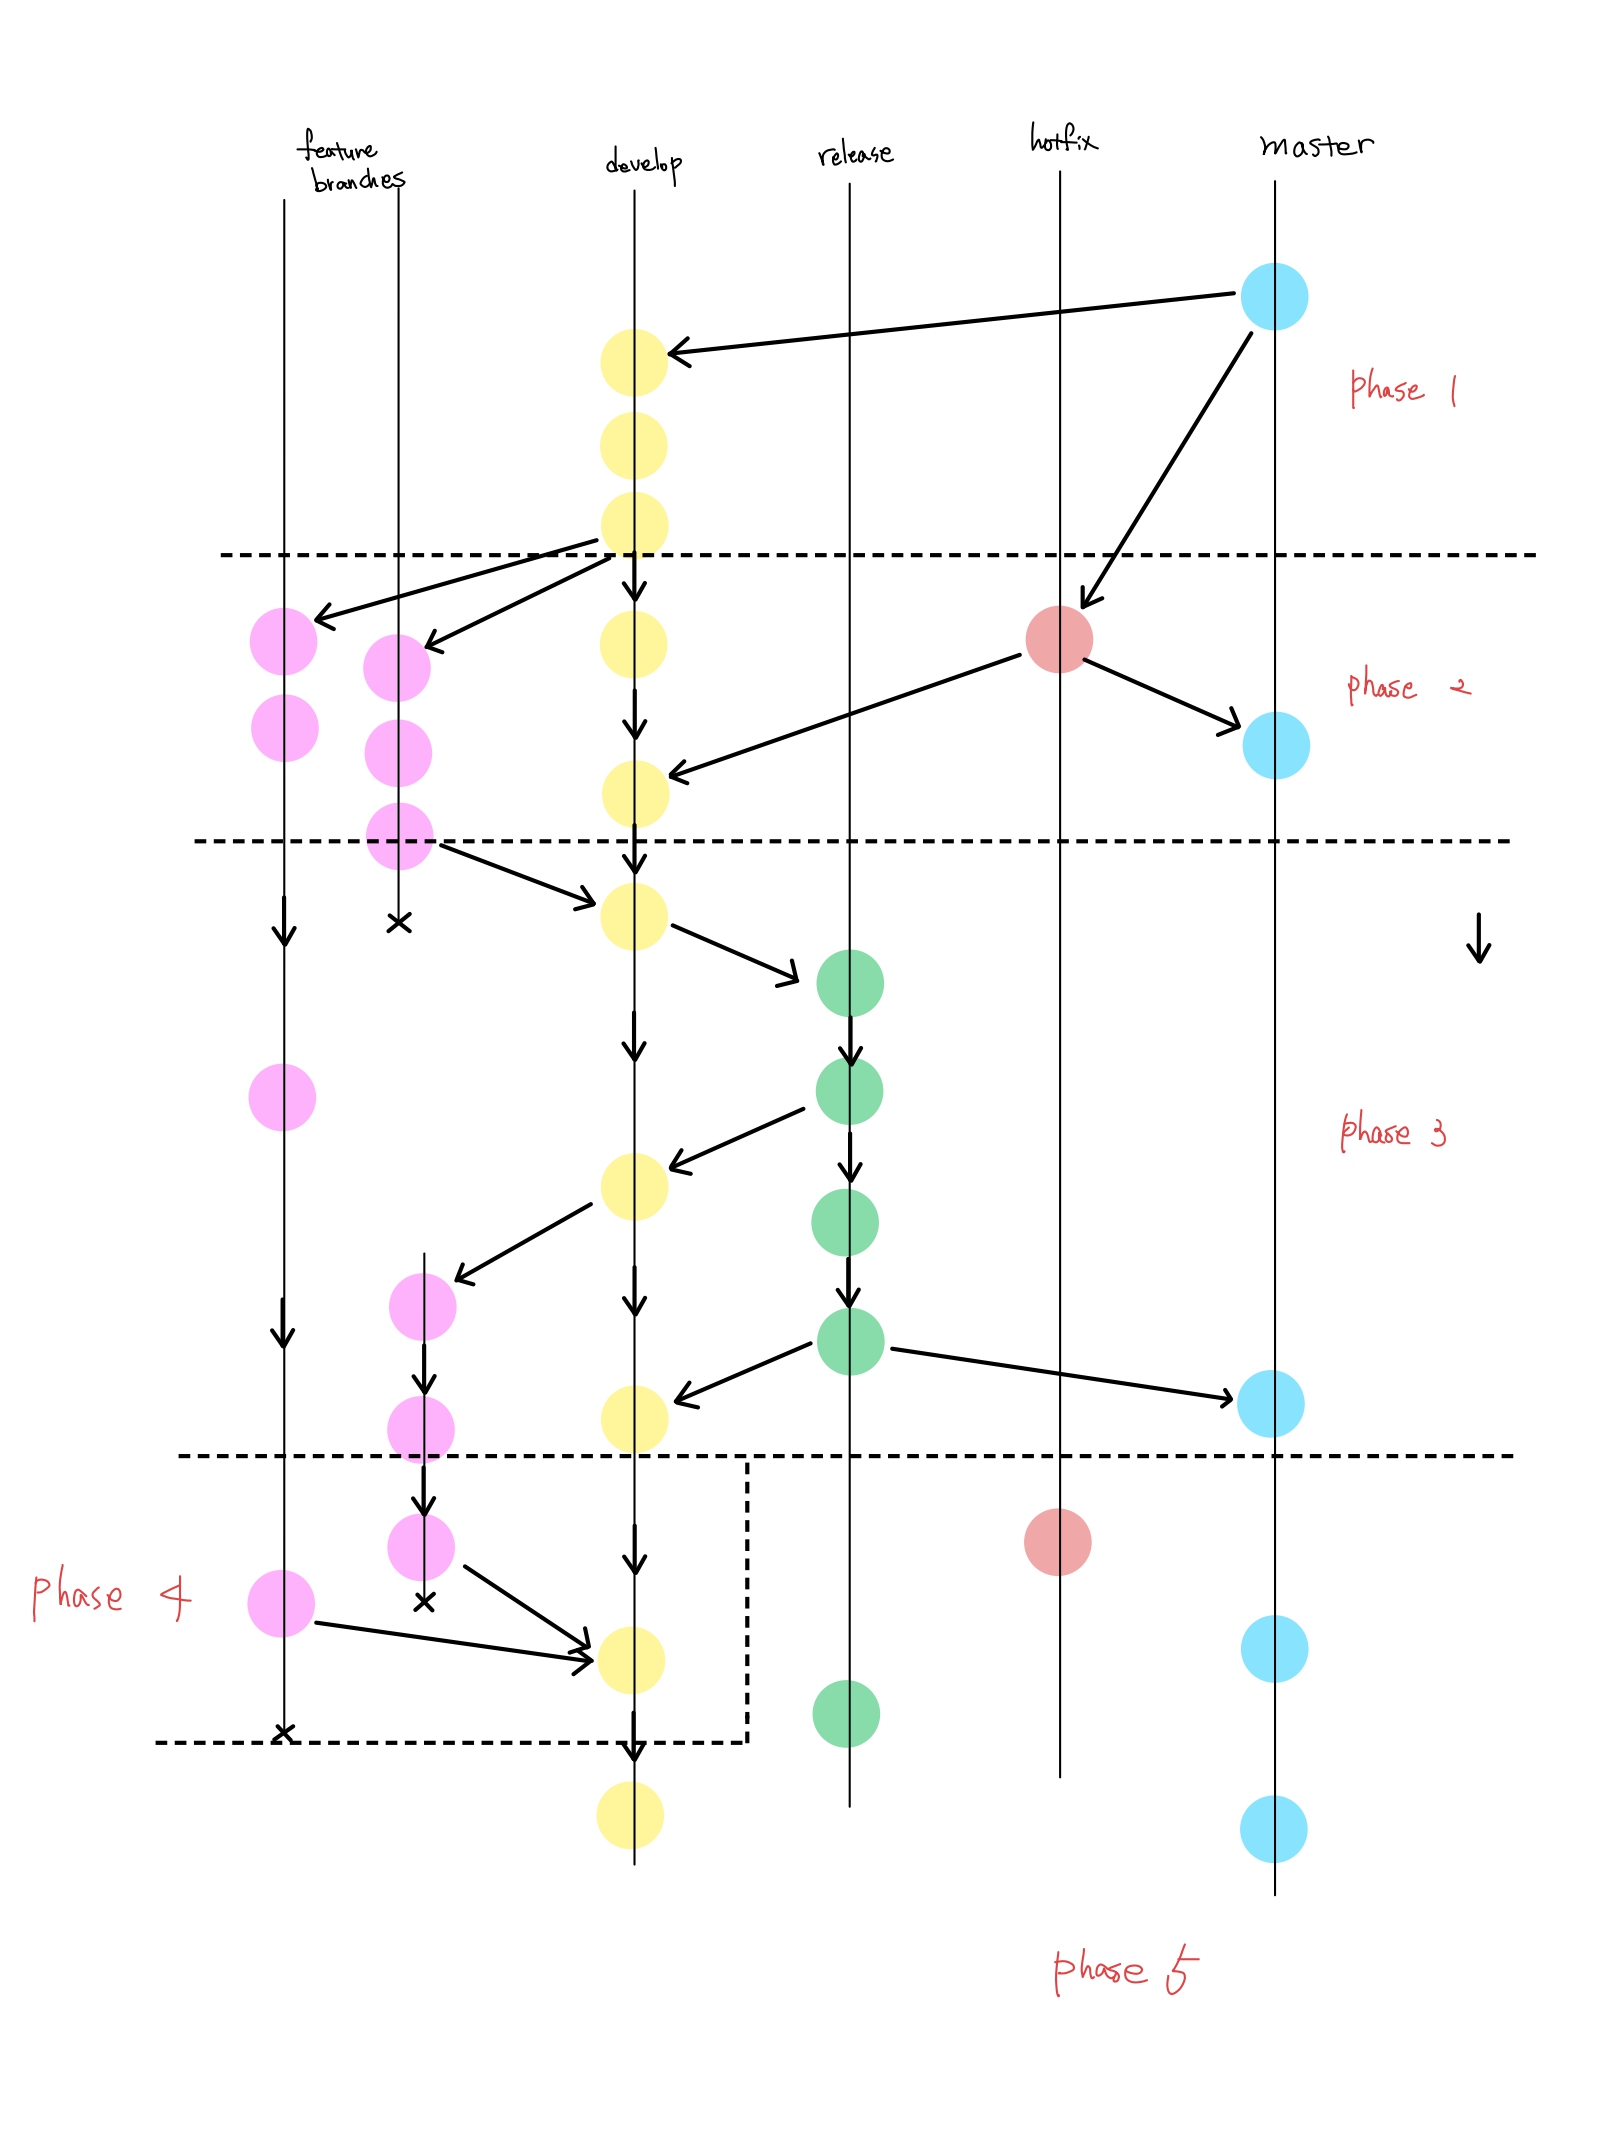 feature
branches
develop
release
hotfix
master
phase 1
phase 2
phase 3
phase 4
phase 5